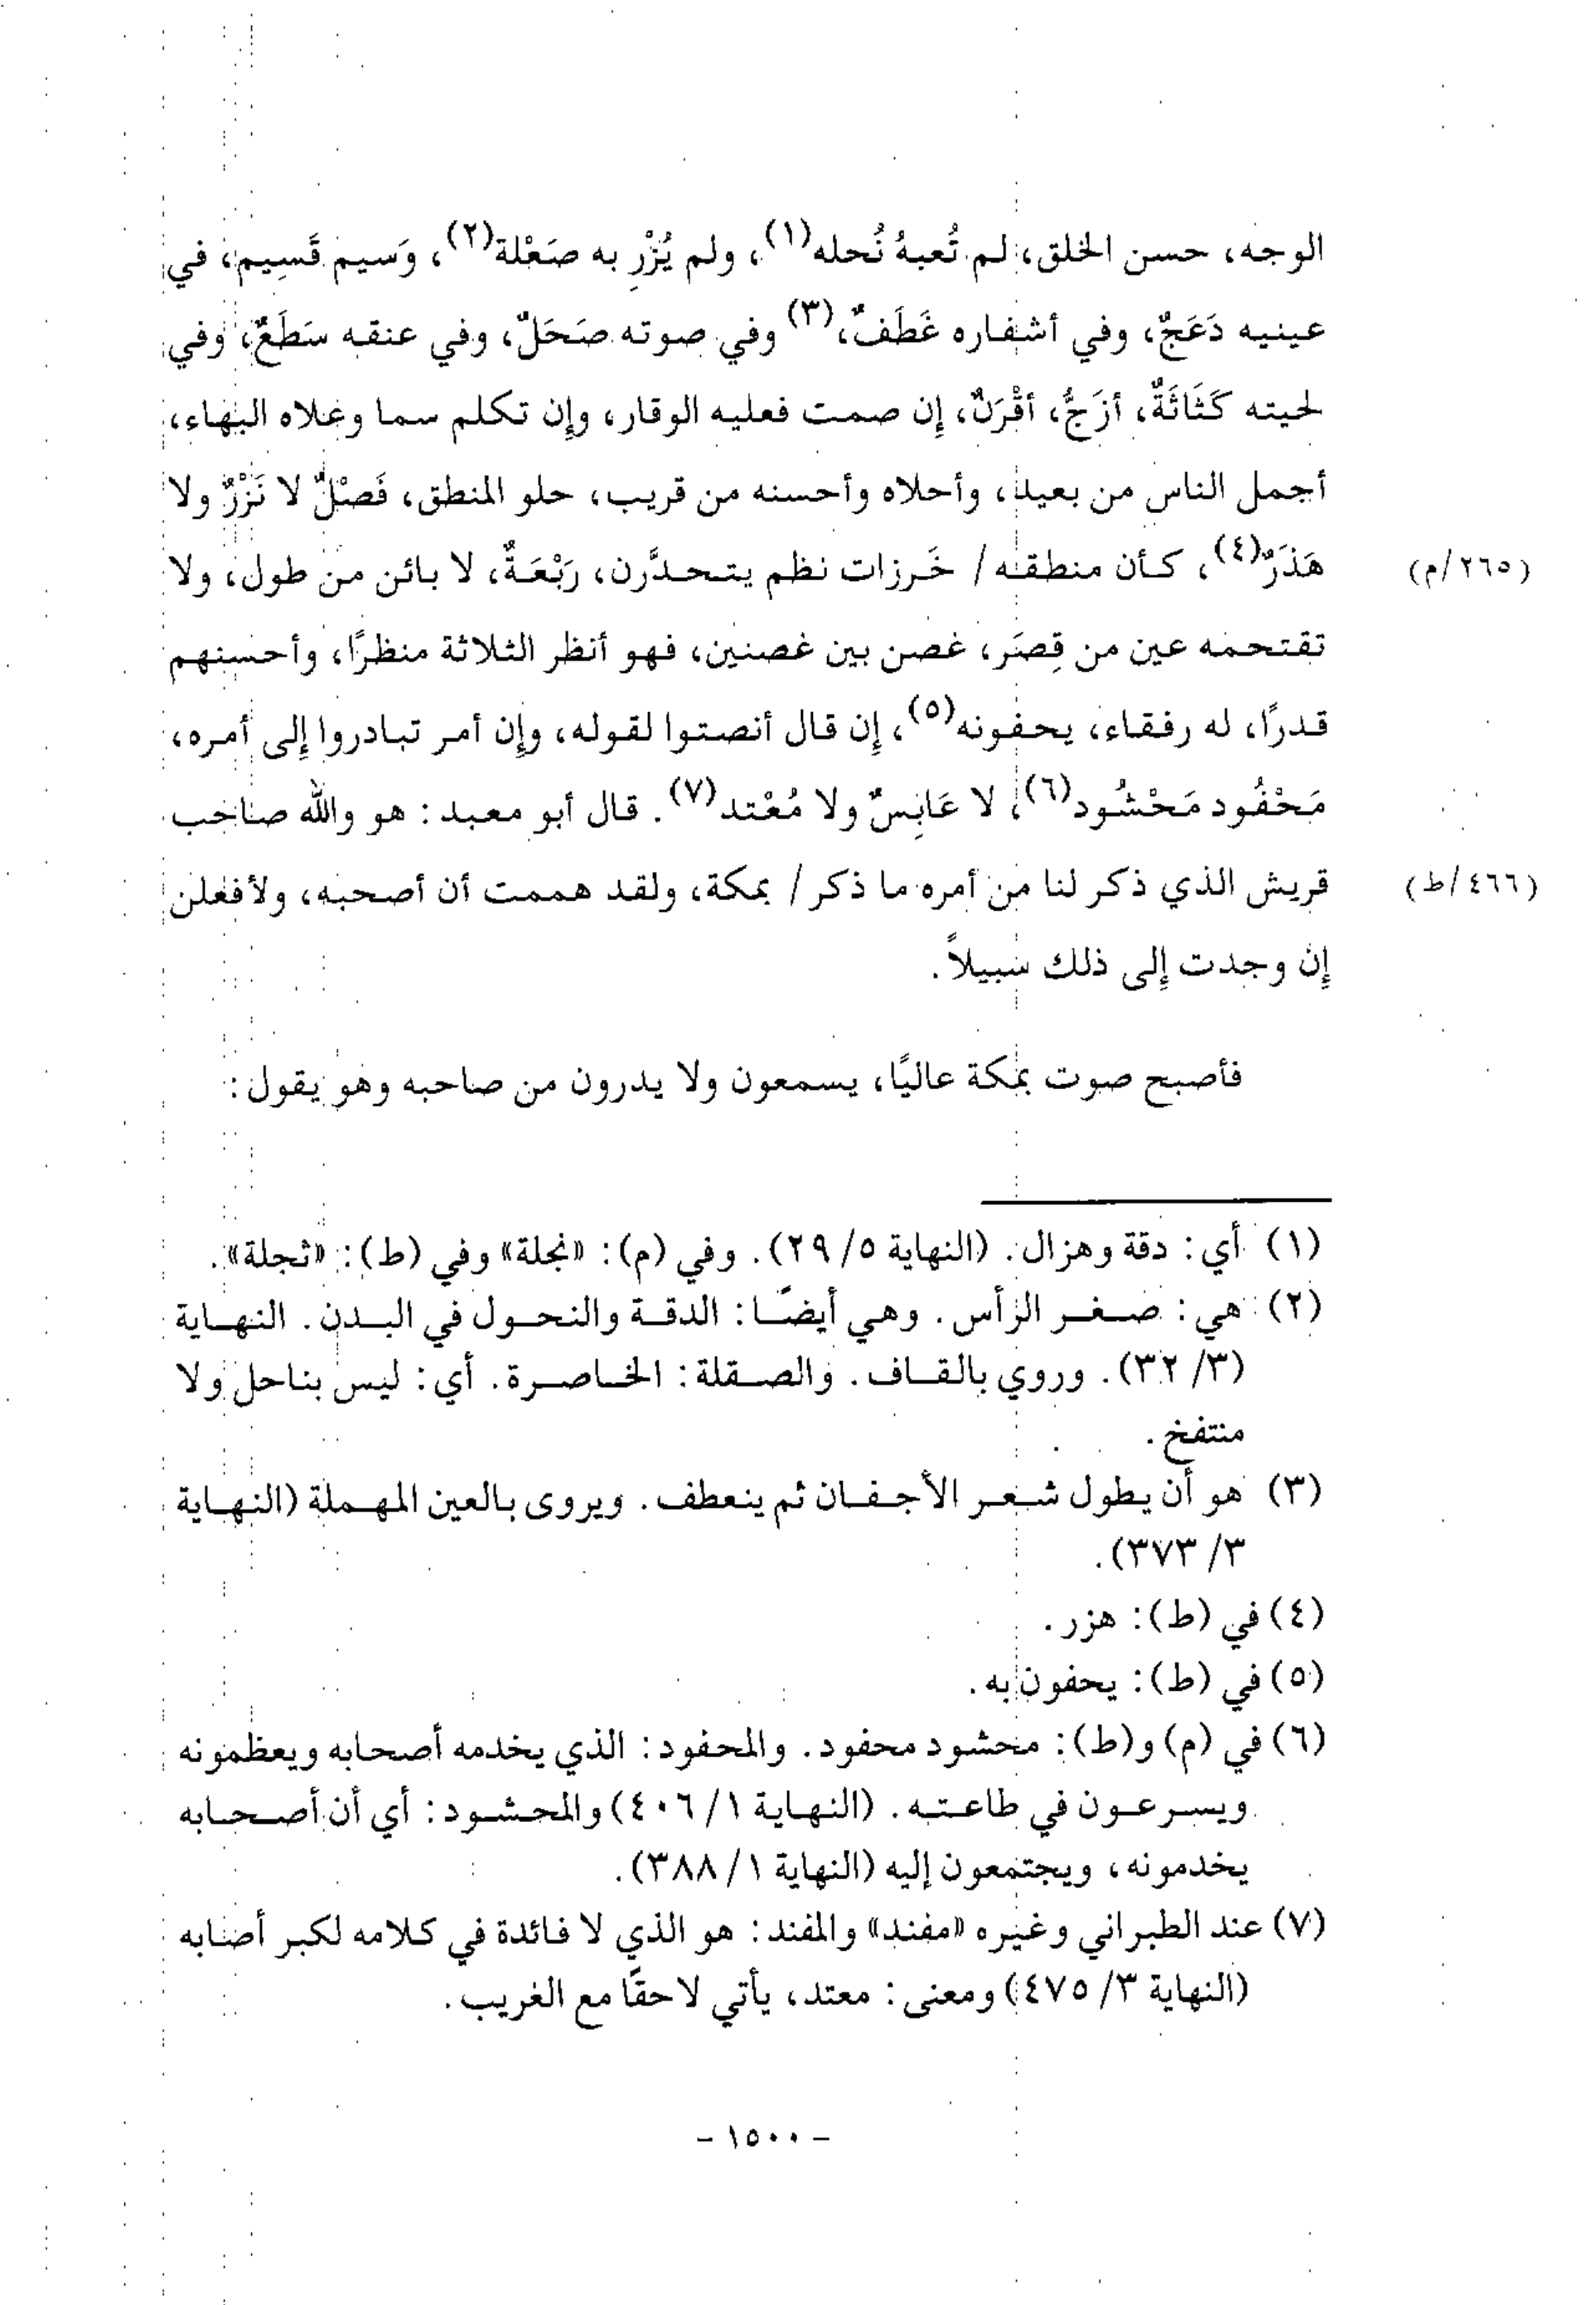 الوجه، حسن الخلق، لم تُعبهُ نُحله(١)، ولم يُزْرِ به صَعْلة(٢)، وَسيم قَسِيم، في
عينيه دَعَجٌ، وفي أشفاره غَطَفٌ،(٣) وفي صوته صَحَلٌ، وفي عنقه سَطَعٌ، وفي
لحيته كَثَاثَةٌ، أزَجُّ، أقْرَنٌ، إن صمت فعليه الوقار، وإن تكلم سما وعلاه البهاء،
أجمل الناس من بعيد، وأحلاه وأحسنه من قريب، حلو المنطق، فَصْلٌ لا نَزْرٌ ولا
هَذَرٌ(٤)، كأن منطقه / خَرزات نظم يتحدَّرن، رَبْعَةٌ، لا بائن من طول، ولا (٢٦٥/م)
تقتحمه عين من قِصَر، غصن بين غصنين، فهو أنظر الثلاثة منظرًا، وأحسنهم
قدرًا، له رفقاء، يحفونه(٥)، إن قال أنصتوا لقوله، وإن أمر تبادروا إلى أمره،
مَحْفُود مَحْشُود(٦)، لا عَابِسٌ ولا مُعْتد(٧). قال أبو معبد: هو والله صاحب
قريش الذي ذكر لنا من أمره ما ذكر / بمكة، ولقد هممت أن أصحبه، ولأفعلن (٤٦٦/ط)
إن وجدت إلى ذلك سبيلاً.
فأصبح صوت بمكة عاليًا، يسمعون ولا يدرون من صاحبه وهو يقول:
(١) أي: دقة وهزال. (النهاية ٥/ ٢٩). وفي (م): «نجلة» وفي (ط): «ثجلة».
(٢) هي: صغر الرأس. وهي أيضًا: الدقة والنحول في البدن. النهاية
(٣/ ٣٢). وروي بالقاف. والصقلة: الخاصرة. أي: ليس بناحل ولا
منتفخ.
(٣) هو أن يطول شعر الأجفان ثم ينعطف. ويروى بالعين المهملة (النهاية
٣/ ٣٧٣).
(٤) في (ط): هزر.
(٥) في (ط): يحفون به.
(٦) في (م) و(ط): محشود محفود. والمحفود: الذي يخدمه أصحابه ويعظمونه
ويسرعون في طاعته. (النهاية ١/ ٤٠٦) والمحشود: أي أن أصحابه
يخدمونه، ويجتمعون إليه (النهاية ١/ ٣٨٨).
(٧) عند الطبراني وغيره «مفند» والمفند: هو الذي لا فائدة في كلامه لكبر أصابه
(النهاية ٣/ ٤٧٥) ومعنى: معتد، يأتي لاحقًا مع الغريب.
- ١٥٠٠ -